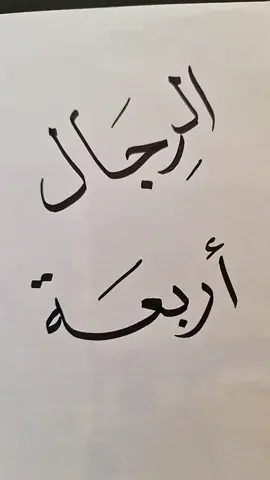 الرِجَال
أربعَة